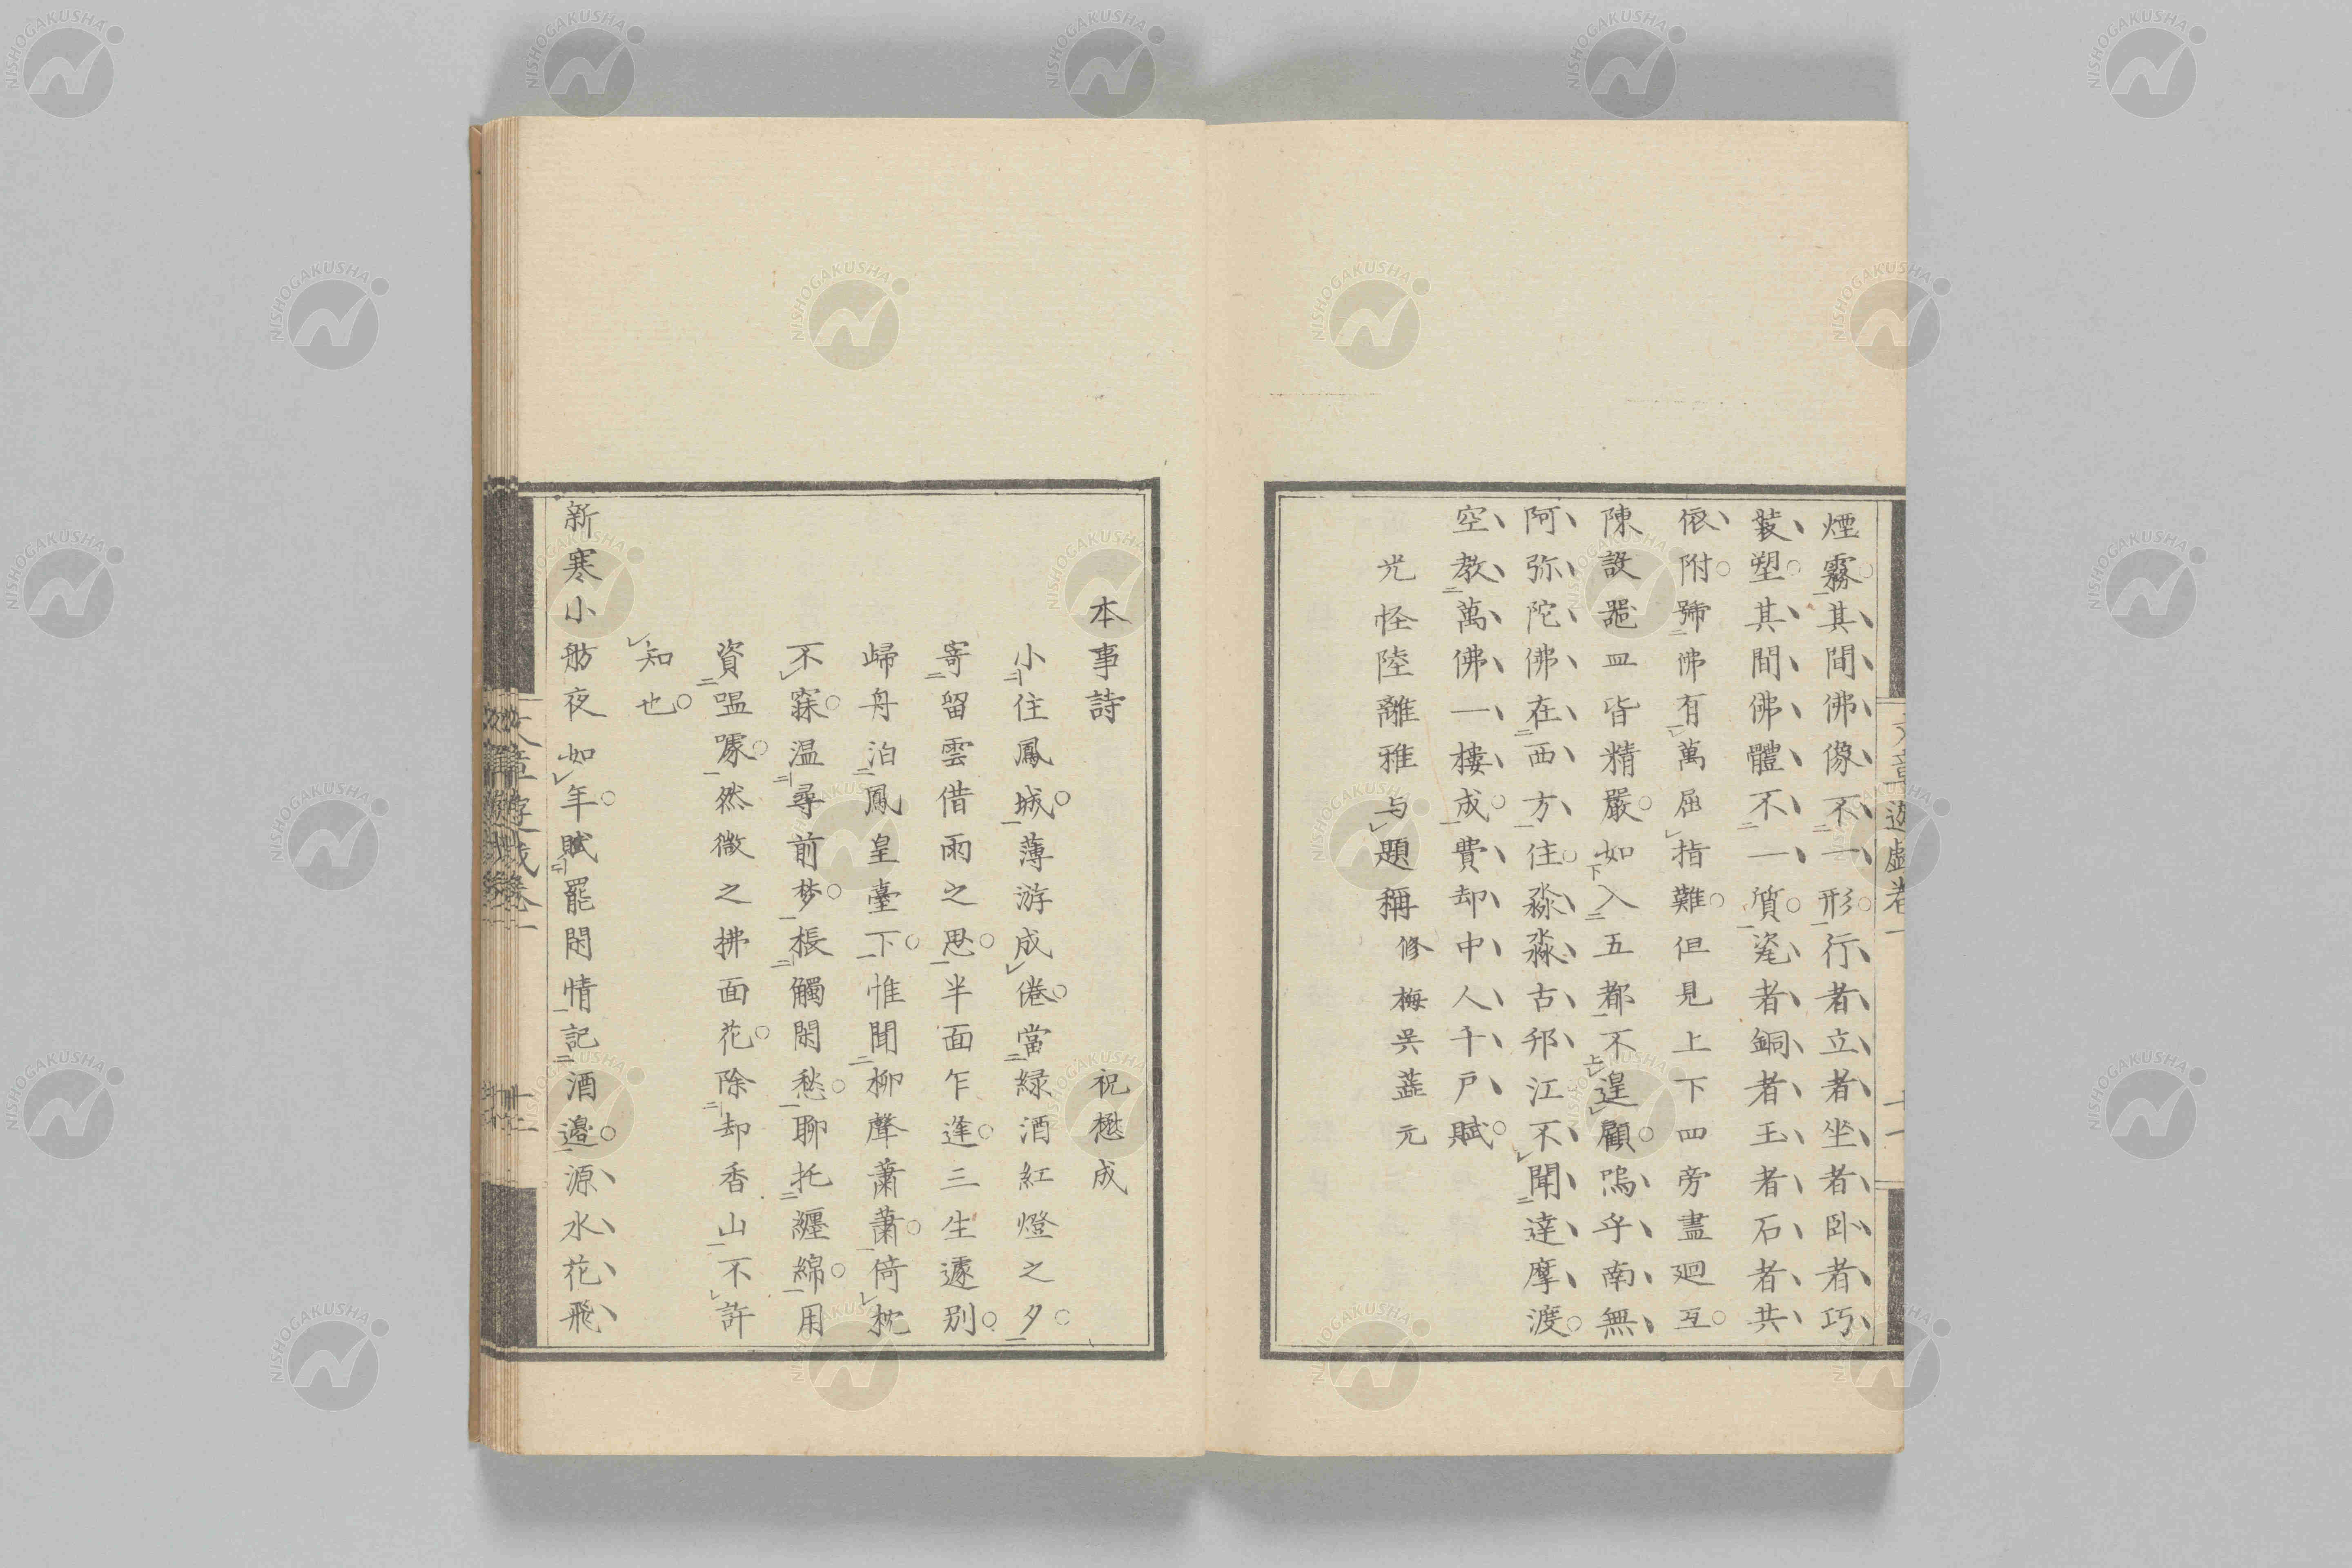 煙霧其間佛像不一形行者立者坐者臥者巧
裝塑其間佛體不一質瓷者銅者玉者石者共
依附號佛有萬屈指難但見上下四旁盡廻互
陳設器皿皆精嚴如入五都不遑顧嗚乎南無
阿弥陀佛在西方住淼淼古邦江不聞達摩渡
空教萬佛一樓成費却中人千戶賦
光怪陸離雅与題稱 修梅吳蕋元
本事詩 祝懋成
小住鳳城薄游成倦當綠酒紅燈之夕
寄留雲借雨之思半面乍逢三生遽別
歸舟泊鳳皇臺下惟聞柳聲蕭蕭倚枕
不寐温尋前梦棖觸閑愁聊托纏綿用
資嗢噱然微之拂面花除却香山不許
知也
新寒小舫夜如年賦罷閑情記酒邊源水花飛
NISHOGAKUSHA